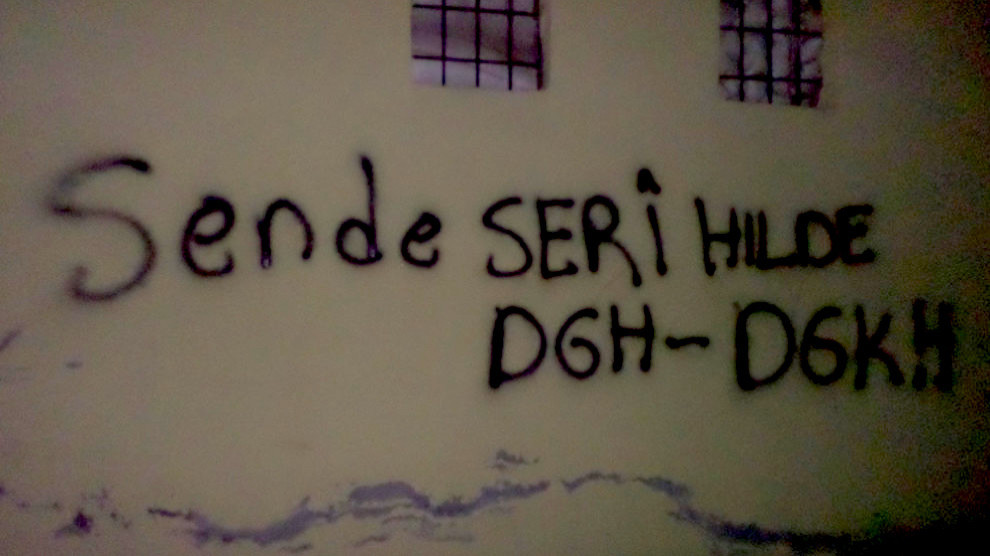 Sende SERÎ HILDE
DGH-DGKH